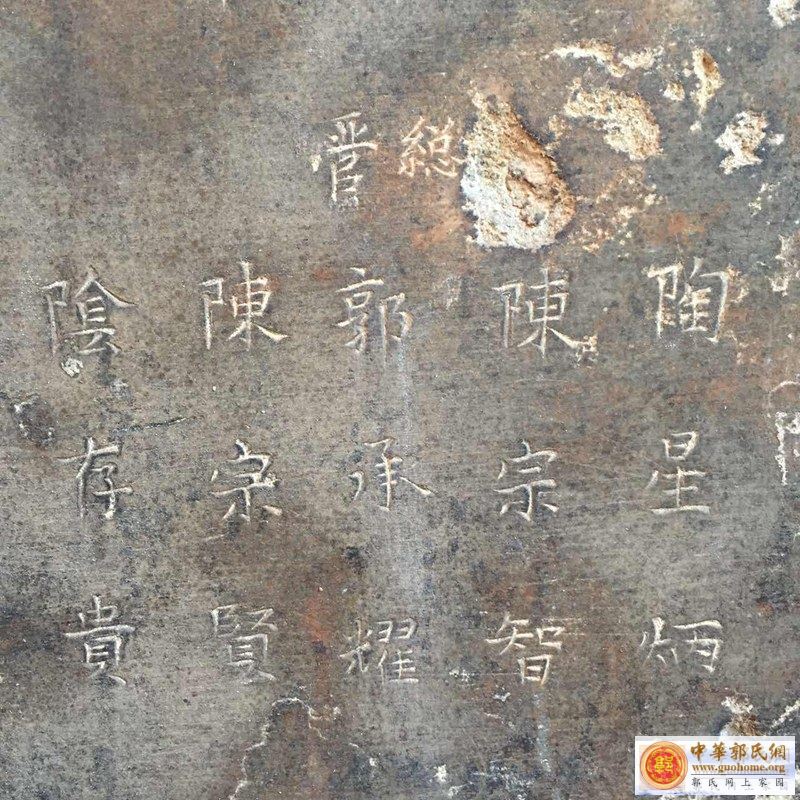 総管
陶星炳
陳宗智
郭承耀
陳宗賢
陰存貴
中華郭氏網
www.guohome.org
郭氏网上家园